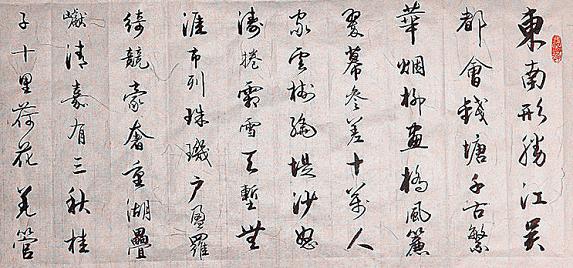 東南形勝江吳
都會錢塘千古繁
華烟柳畫橋風簾
翠幕參差十萬人
家雲樹繞堤沙怒
濤捲霜雪天塹無
涯市列珠璣户盈羅
綺競豪奢重湖疊
巘清嘉有三秋桂
子十里荷花羌管